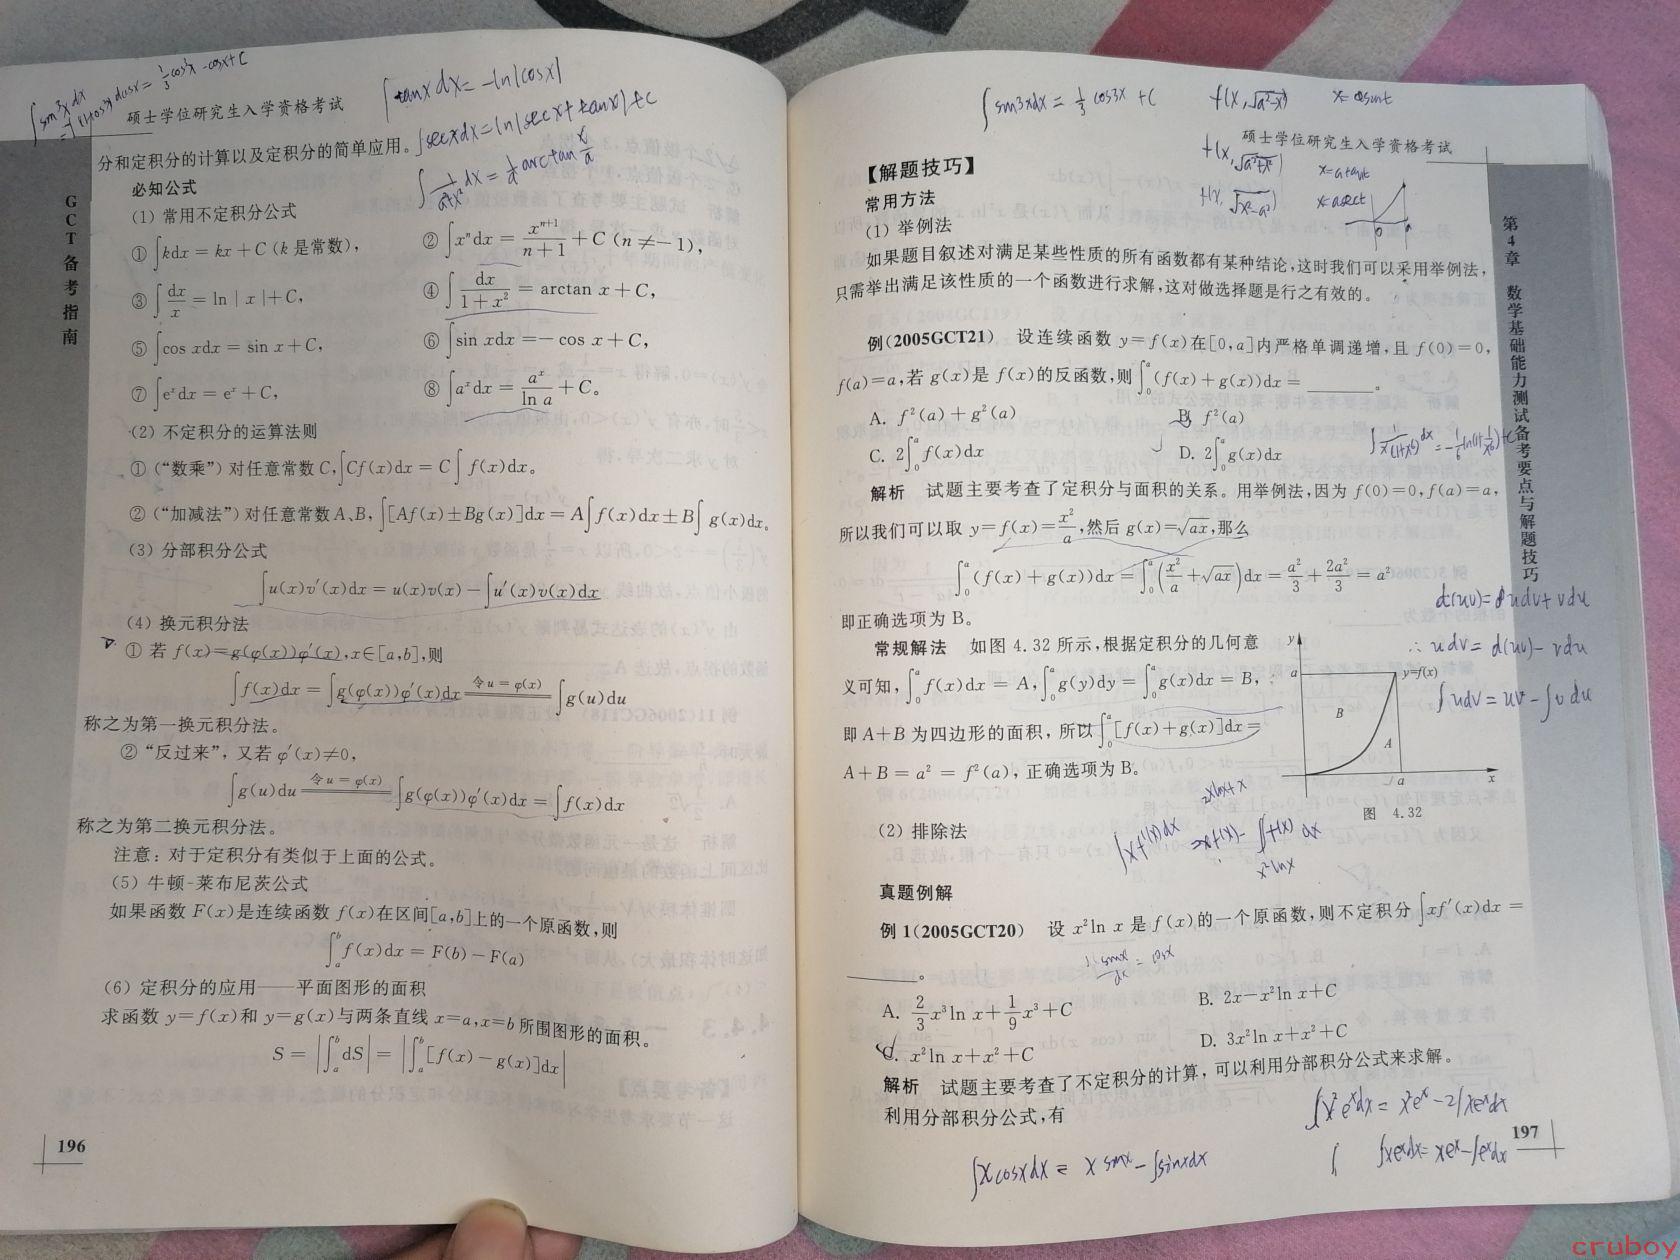 ∫sin³xdx
= -∫(1-cos²x)dcosx = 1/3 cos³x - cosx + C
∫tanxdx = -ln|cosx|
∫secxdx = ln|secx + tanx| + C
∫ 1/(a²+x²) dx = 1/a arctan x/a
硕士学位研究生入学资格考试
GCT备考指南
分和定积分的计算以及定积分的简单应用。
必知公式
(1) 常用不定积分公式
① ∫kdx = kx + C (k 是常数),
② ∫xⁿdx = xⁿ⁺¹/(n+1) + C (n ≠ −1),
③ ∫dx/x = ln | x | + C,
④ ∫dx/(1+x²) = arctan x + C,
⑤ ∫cos xdx = sin x + C,
⑥ ∫sin xdx = − cos x + C,
⑦ ∫eˣdx = eˣ + C,
⑧ ∫aˣdx = aˣ/ln a + C。
(2) 不定积分的运算法则
① (“数乘”) 对任意常数 C, ∫Cf(x)dx = C∫f(x)dx。
② (“加减法”) 对任意常数 A、B, ∫[Af(x)±Bg(x)]dx = A∫f(x)dx ± B∫g(x)dx。
(3) 分部积分公式
∫u(x)v′(x)dx = u(x)v(x) − ∫u′(x)v(x)dx
(4) 换元积分法
① 若 f(x)=g(φ(x))φ′(x),x∈[a,b],则
∫f(x)dx = ∫g(φ(x))φ′(x)dx 令u = φ(x) ∫g(u)du
称之为第一换元积分法。
② “反过来”，又若 φ′(x)≠0,
∫g(u)du 令u = φ(x) ∫g(φ(x))φ′(x)dx = ∫f(x)dx
称之为第二换元积分法。
注意：对于定积分有类似于上面的公式。
(5) 牛顿-莱布尼茨公式
如果函数 F(x)是连续函数 f(x)在区间[a,b]上的一个原函数,则
∫ₐᵇ f(x)dx = F(b) − F(a)
(6) 定积分的应用——平面图形的面积
求函数 y=f(x)和 y=g(x)与两条直线 x=a,x=b 所围图形的面积。
S = |∫ₐᵇ dS| = |∫ₐᵇ [f(x) − g(x)]dx|
196
∫sin3xdx = 1/3 cos3x + C
f(x, √a²-x²) x=asint
f(x, √a²+x²) x=atant
f(x, √x²-a²) x=asect
0 a
硕士学位研究生入学资格考试
第4章 数学基础能力测试备考要点与解题技巧
【解题技巧】
常用方法
(1) 举例法
如果题目叙述对满足某些性质的所有函数都有某种结论,这时我们可以采用举例法,
只需举出满足该性质的一个函数进行求解,这对做选择题是行之有效的。
例(2005GCT21) 设连续函数 y=f(x)在[0,a]内严格单调递增,且 f(0)=0,
f(a)=a,若 g(x)是 f(x)的反函数,则∫₀ᵃ(f(x)+g(x))dx = ______。
A. f²(a)+g²(a)
B. f²(a)
C. 2∫₀ᵃ f(x)dx
D. 2∫₀ᵃ g(x)dx
解析 试题主要考查了定积分与面积的关系。用举例法,因为 f(0)=0,f(a)=a,
所以我们可以取 y=f(x)=x²/a,然后 g(x)=√ax,那么
∫₀ᵃ(f(x)+g(x))dx = ∫₀ᵃ(x²/a + √ax)dx = a²/3 + 2a²/3 = a²
即正确选项为 B。
d(uv)= udv+vdu
∴ udv = d(uv) - vdu
∫udv = uv - ∫vdu
常规解法 如图 4.32 所示,根据定积分的几何意
义可知,∫₀ᵃ f(x)dx = A,∫₀ᵃ g(y)dy = ∫₀ᵃ g(x)dx = B,
即 A+B 为四边形的面积,所以∫₀ᵃ[f(x)+g(x)]dx =
A+B = a² = f²(a),正确选项为 B。
y
a
y=f(x)
B
A
a
x
图 4.32
(2) 排除法
2xlnx+x
∫xf′(x)dx = xf(x) - ∫f(x)dx
x²lnx
真题例解
例 1(2005GCT20) 设 x²ln x 是 f(x)的一个原函数,则不定积分∫xf′(x)dx =
______。
A. 2/3 x³ln x + 1/9 x³ + C
B. 2x−x²ln x+C
C. x²ln x+x²+C
D. 3x²ln x+x²+C
解析 试题主要考查了不定积分的计算，可以利用分部积分公式来求解。
利用分部积分公式,有
∫x²eˣdx = x²eˣ - 2∫xeˣdx
∫xeˣdx = xeˣ - ∫eˣdx
∫xcosxdx = xsinx - ∫sinxdx
197
cruboy